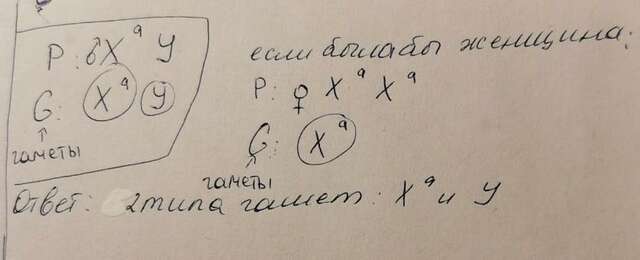 P: ♂ X^a Y
G: X^a Y
↑
гаметы
если была бы женщина:
P: ♀ X^a X^a
G: X^a
↑
гаметы
Ответ: 2 типа гамет: X^a и Y